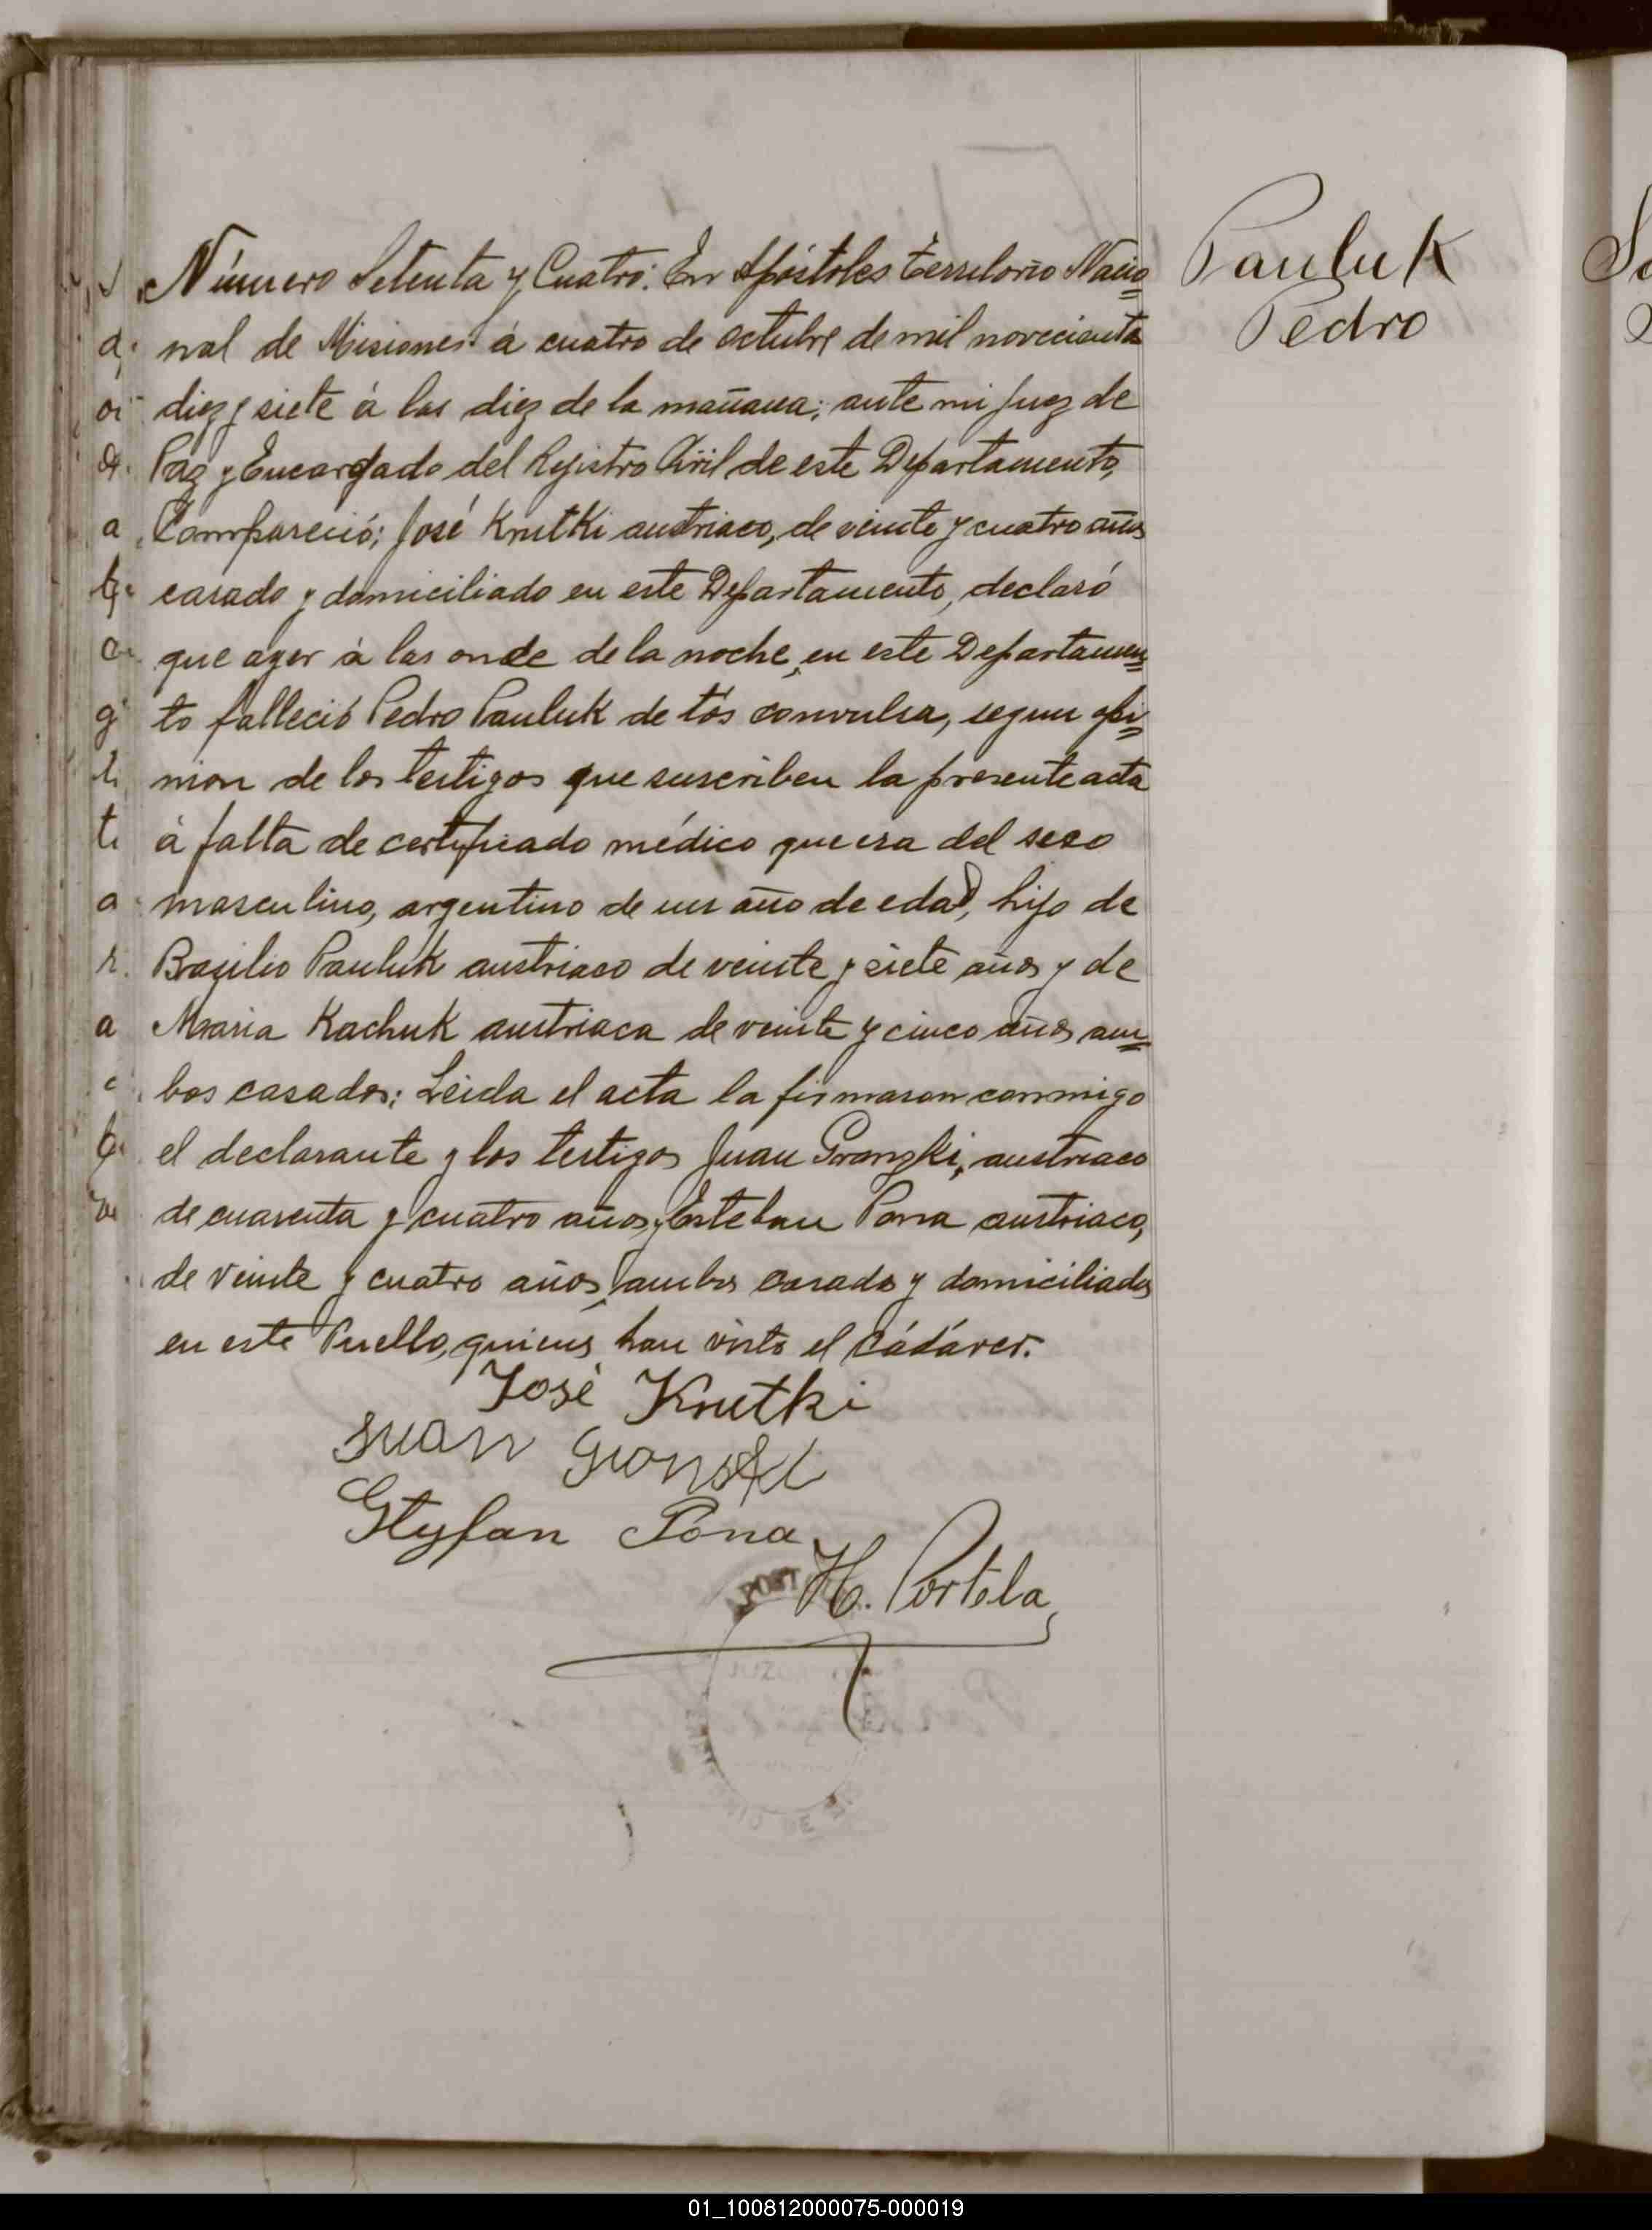 Pauluk
Pedro
Número Setenta y Cuatro: En Apóstoles Territorio Nacio=
nal de Misiones á cuatro de octubre de mil novecientos
diez y siete á las diez de la mañana; ante mi Juez de
Paz y Encargado del Rejistro Civil de este Departamento,
Compareció; José Krutki austriaco, de veinte y cuatro años
casado y domiciliado en este Departamento, declaró
que ayer á las onde de la noche, en este Departamen=
to falleció Pedro Pauluk de tós convulsa, segun opi=
nion de los testigos que suscriben la presente acta
á falta de certificado médico que era del sexo
masculino, argentino de un año de edad, hijo de
Bazilio Pauluk austriaco de veinte y siete años y de
Maria Kachuk austriaca de veinte y cinco años am=
bos casados; Leida el acta la firmaron conmigo
el declarante y los testigos Juan austriaco
de cuarenta y cuatro años, y Esteban Pona austriaco,
de veinte y cuatro años, ambos casado y domiciliados
en este Puello, quienes han visto el cádáver.
José Krutki
Juan
Styfan Pona
H. Portela
01_100812000075-000019